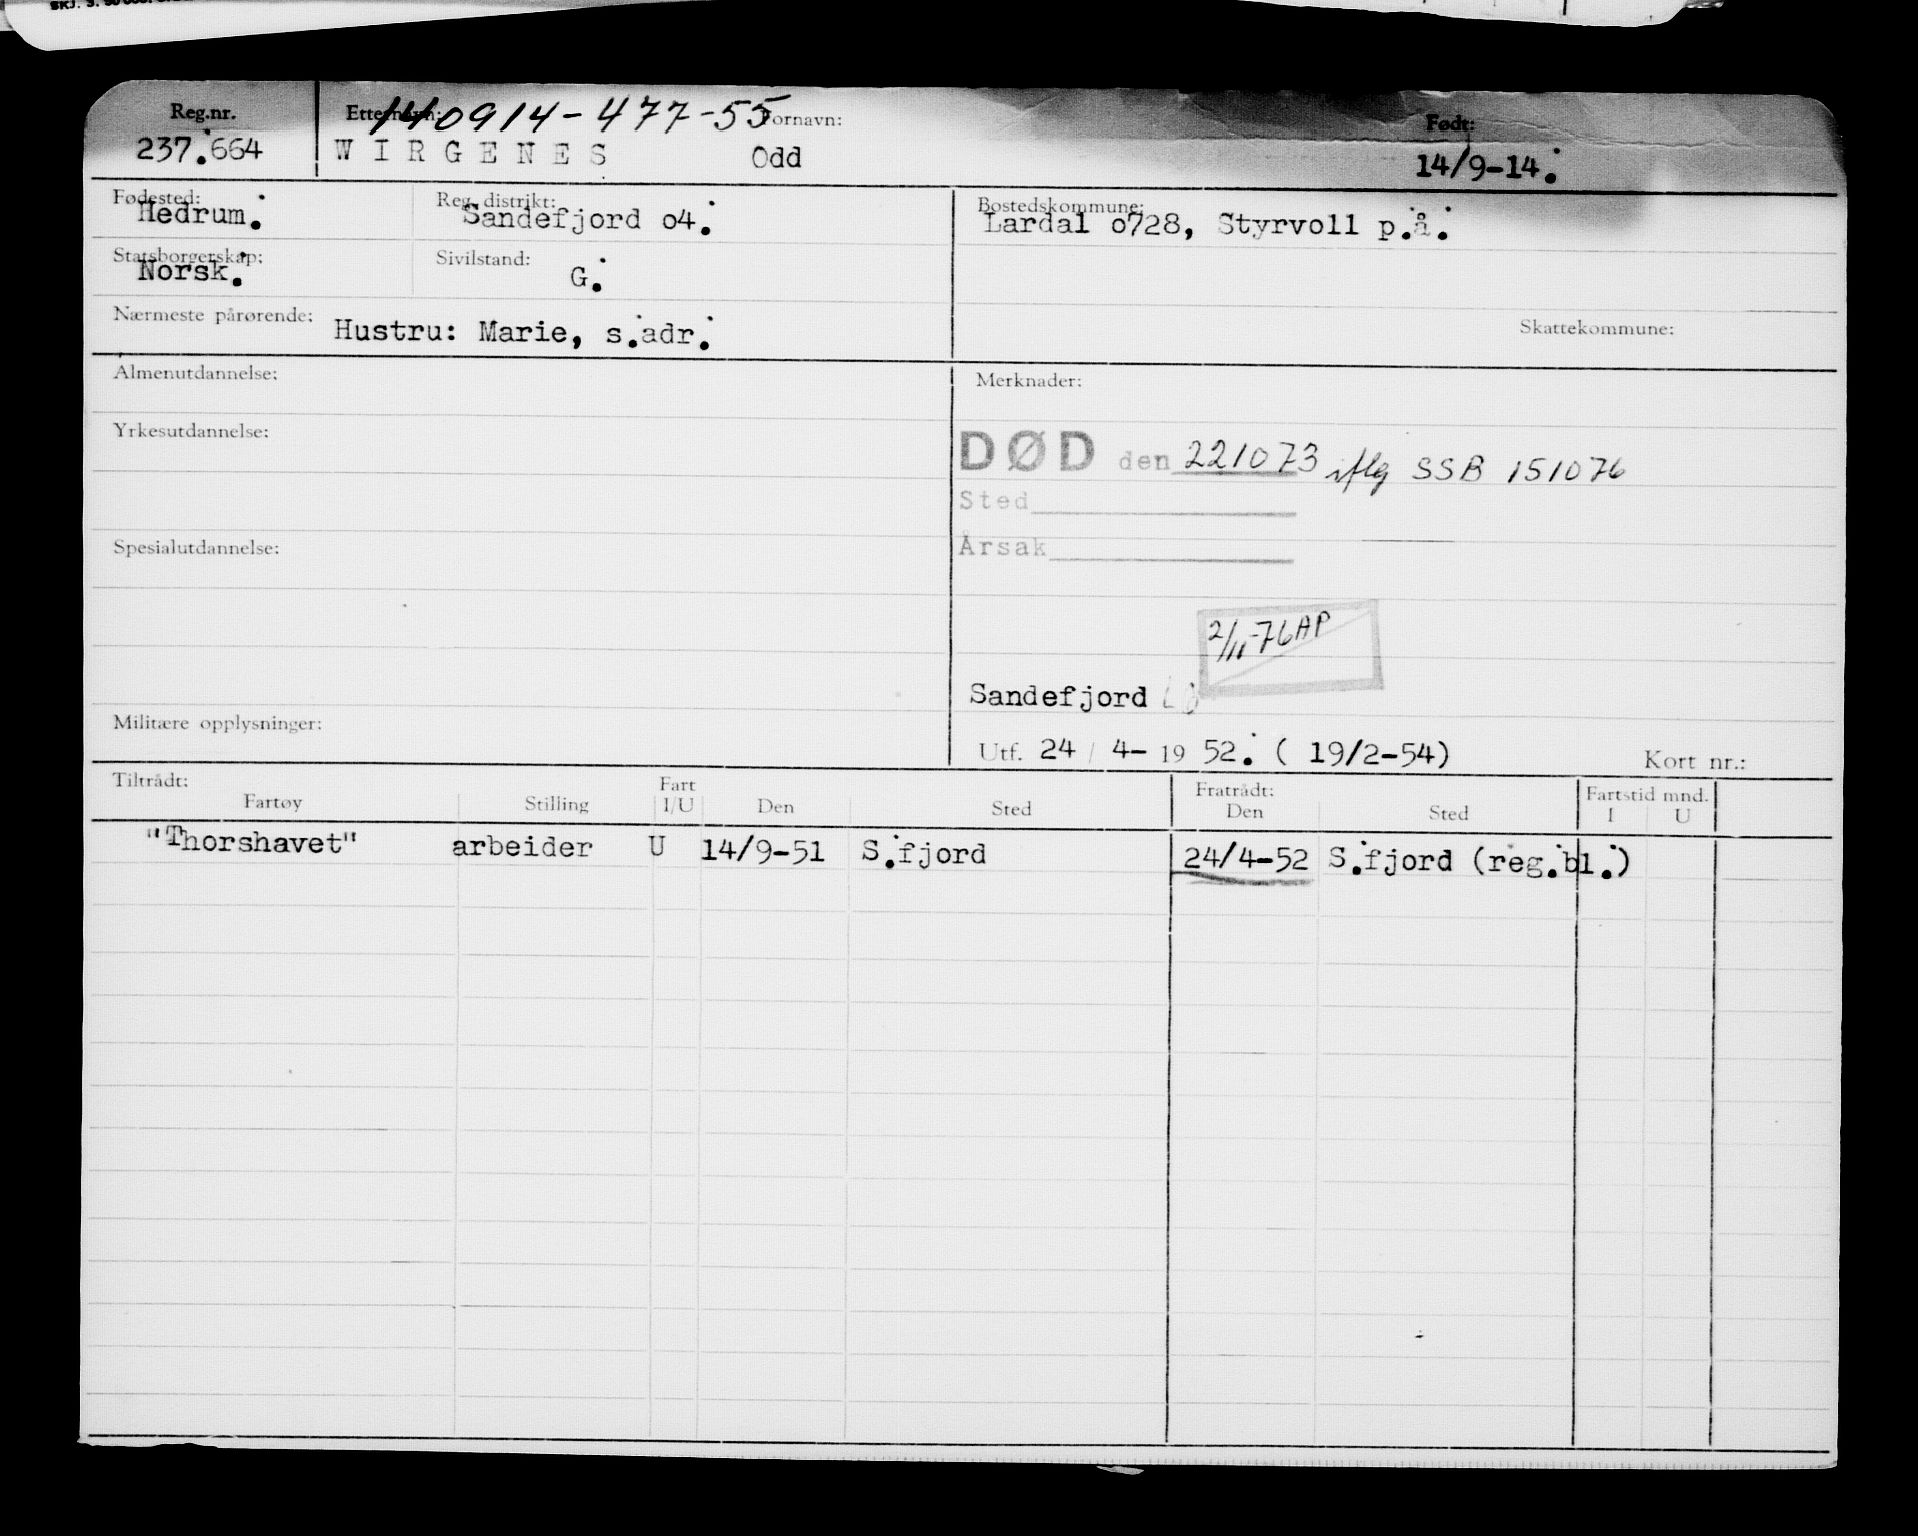 Reg.nr. Etternavn: 140914-477-55 Fornavn: Født:
237.664 WIRGENES Odd 14/9-14.
Fødested: Reg. distrikt: Bostedskommune:
Hedrum. Sandefjord o4. Lardal o728, Styrvoll p.å.
Statsborgerskap: Sivilstand:
Norsk. G.
Nærmeste pårørende: Hustru: Marie, s.adr. Skattekommune:
Almenutdannelse: Merknader:
Yrkesutdannelse:
DØD den 221073 iflg SSB 151076
Sted
Årsak
Spesialutdannelse:
2/11-76 AP
Sandefjord
Militære opplysninger:
Utf. 24 / 4- 19 52. ( 19/2-54) Kort nr.:
Tiltrådt: Fart Fratrådt: Fartstid mnd.
Fartøy Stilling I/U Den Sted Den Sted I U
"Thorshavet" arbeider U 14/9-51 S.fjord 24/4-52 S.fjord (reg.bl.)